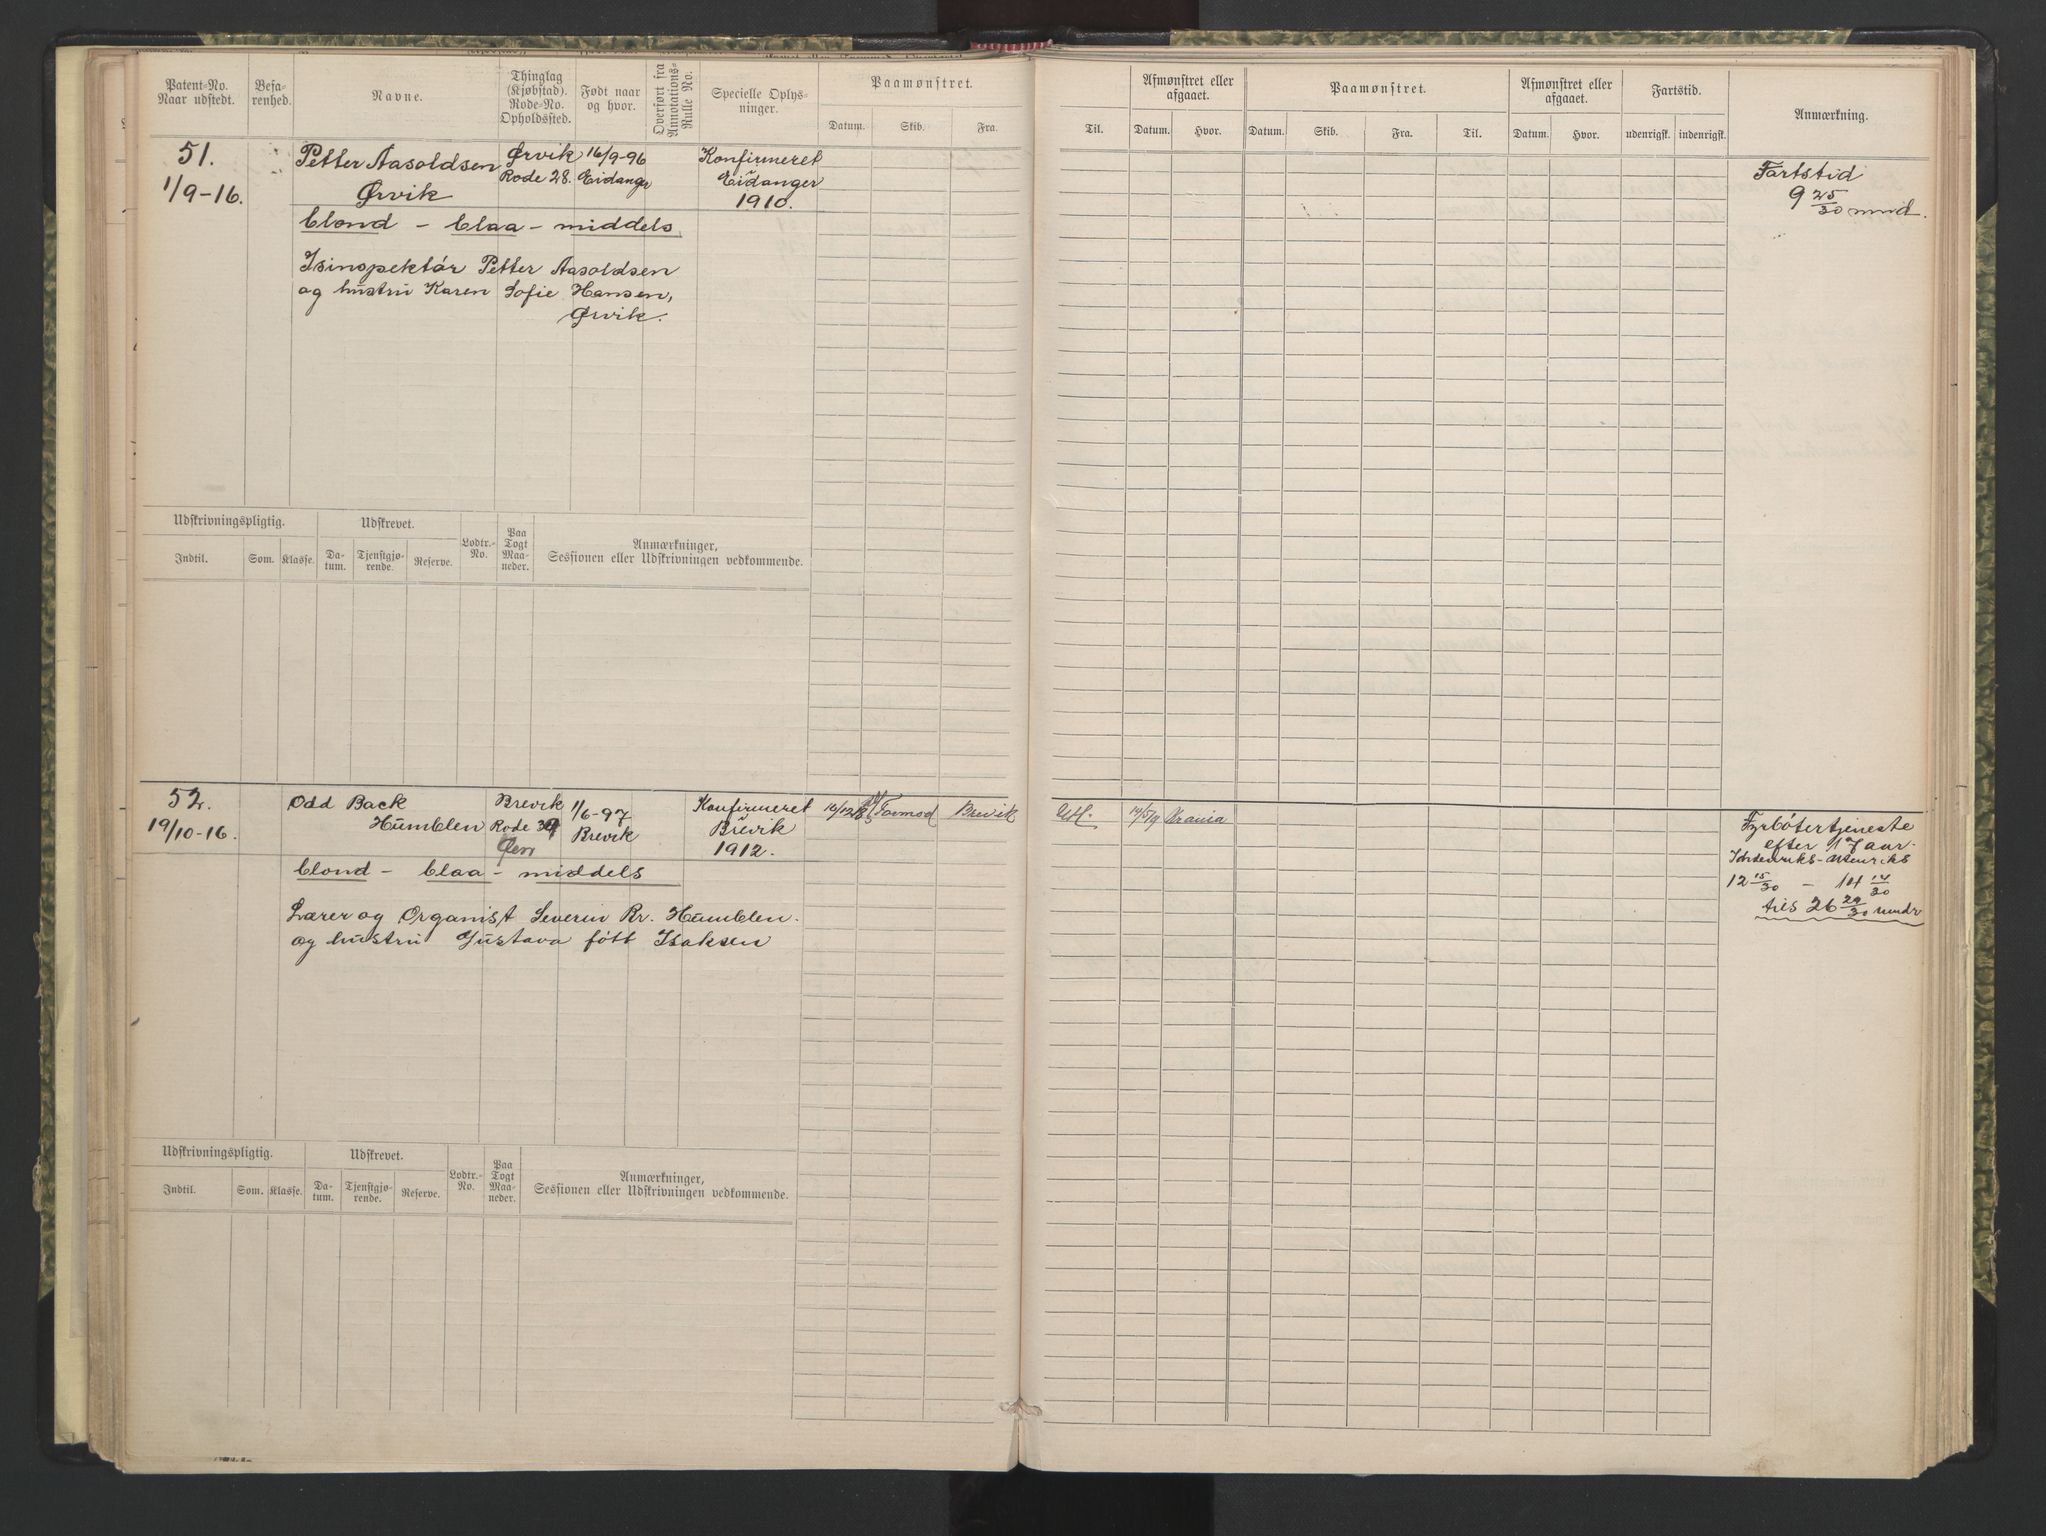 Patent-No.
Naar udstedt.
Befa-
renhed.
Navne.
Thinglag
(Kjøbstad).
Rode-No.
Opholdssted.
Født naar
og hvor.
Overført fra
Annotations-
Rulle No.
Specielle Oplys-
ninger.
Paamønstret.
Datum.
Skib.
Fra.
Til.
Afmønstret eller
afgaaet.
Datum.
Hvor.
Paamønstret.
Datum.
Skib.
Fra.
Til.
Afmønstret eller
afgaaet.
Datum.
Hvor.
Fartstid.
udenrigsk.
indenrigsk.
Anmærkning.
51.
1/9-16.
Petter Aasoldsen
Ørvik
Ørvik
Rode 28.
16/9-96
Eidanger
Konfirmeret
Eidanger
1910.
Fartstid
9 25/30 mnd.
blond - blaa - middels.
Isinspektør Petter Aasoldsen
og hustru Karen Sofie Hansen,
Ørvik.
Udskrivningspligtig.
Udskrevet.
Lodtr.-
No.
Paa
Togt
Maa-
neder.
Anmærkninger,
Sessionen eller Udskrivningen vedkommende.
Indtil.
Som.
Klasse.
Da-
tum.
Tjenstgjø-
rende.
Reserve.
52.
19/10-16.
Odd Back
Humblen
Brevik
Rode
Øen
1/6-97
Brevik
Konfirmeret
Brevik
1912.
Brevik
Fyrbøtertjeneste
efter 17 aar.
12 15/30 - 14 14/30
tils 26 29/30 mndr
blond - blaa - middels
Lærer og Organist Severin Br. Humblen.
og hustru Gustava født Isaksen
Udskrivningspligtig.
Udskrevet.
Lodtr.-
No.
Paa
Togt
Maa-
neder.
Anmærkninger,
Sessionen eller Udskrivningen vedkommende.
Indtil.
Som.
Klasse.
Da-
tum.
Tjenstgjø-
rende.
Reserve.